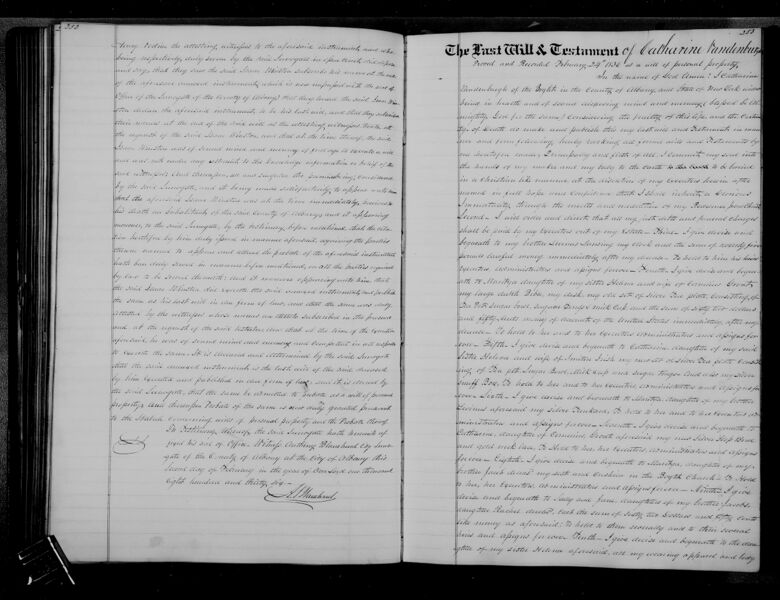 352
being respectively duly sworn by the said Surrogate in open Court did depose
and say, that they saw the said Isaac Winston subscribe his name at the end
of the aforesaid annexed instrument, which is now impressed with the seal of
Office of the Surrogate of the County of Albany; that they heard the said Isaac
declare the aforesaid instrument, to be his last will, and that they subscribed
their names at the end of the said will as the attesting witnesses thereto, at
the request of the said Isaac Winston, and that at the time thereof, the said
Isaac Winston was of sound mind and memory, of full age to execute a will
and was not under any restraint to the knowledge information or belief of the
said witnesses. And thereupon
by the said Surrogate, and it being made satisfactorily to appear unto him
that the aforesaid Isaac Winston was at the time immediately previous to
his death an inhabitant of the said County of Albany; and it appearing
moreover, to the said Surrogate, by the testimony before mentioned, that the
in manner aforesaid, requiring the parties
therein named to appear and attend the probate of the aforesaid instrument
hath been duly served in manner before mentioned, on all the parties required
by law to be served therewith; and it moreover appearing unto him, that
the said Isaac Winston did execute the said annexed instrument, and publish
the same as his last will in due form of law, and that the same was duly
attested by the witnesses whose names are thereto subscribed in the presence
and at the request of the said testator, and that at the time of the execution
aforesaid he was of sound mind and memory and competent in all respects
to execute the same. It is declared and determined by the said Surrogate
that the said annexed instrument is the last will of the said deceased
by him executed and published in due form of law; and it is decreed by
the said Surrogate, that the same be admitted to probate as a will of personal
property; and thereupon Probate of the same is now duly granted pursuant
to the Statute concerning wills of personal property and the Probate thereof
In Testimony Whereof, the said Surrogate hath hereunto af-
fixed his seal of Office. Witness Anthony Blanchard Esq. Surro-
gate of the County of Albany at the City of Albany this
second day of February in the year of Our Lord one thousand
eight hundred and thirty six.—
A. Blanchard
353
The Last Will & Testament of Catharine Vandenburgh
Proved and Recorded February 24th 1836 as a will of personal property,
In the name of God Amen: I Catharine
Vandenburgh of the Boght in the County of Albany, and State of New York being
being in health and of sound disposing mind and memory, blessed be Al-
mighty God for the same; Considering the frailty of this life, and the Certain-
ty of death do make and publish this my last will and Testament in man-
ner and form following, hereby revoking all former wills and Testaments by
me heretofore made. Principally and first of all I commit my soul into
the hands of my maker and my body to the earth to be buried
in a christian like manner at the discretion of my executors herein after
named in full hope and confidence that I shall inherit a Glorious
Immortality through the merits and mediation of my Redeemer
Second. I will order and direct that all my just debts and funeral charges
shall be paid by my Executors out of my estate. Third. I give devise and
bequeath to my brother my clock and the sum of
pounds lawful money immediately after my decease. To hold to him his heirs
executors administrators and assigns forever. Fourth. I give devise and bequeath
to Maritza daughter of my sister Helena and wife of Cornelius Groot,
my large dutch Bible, my desk, my old set of silver Tea plate, consisting of
Tea Pot sugar bowl sugar tongs milk cup and the sum of sixty two dollars
and fifty cents money of the United States immediately after my
decease. To hold to her and to her Executors administrators and assigns for
ever. Fifth. I give devise and bequeath to Catharine daughter of my said
sister Helena and wife of
ing of Tea pot Sugar Bowl Milk Cup and sugar Tongs. And also my silver
Snuff Box. To hold to her and to her Executors administrators and assigns for
ever. Sixth. I give devise and bequeath to Maritza, daughter of my brother
aforesaid my silver Tankard, To hold to her and to her Executors ad-
ministrators and assigns forever. Seventh. I give devise and bequeath to
Catharine, daughter of Cornelius Groot aforesaid my
To hold to her, her Executors administrators and assigns
forever. Eighth. I give devise and bequeath to Maritza, daughter of my
brother my seat and cushion in the Boght Church. To hold
to her, her Executors administrators and assigns forever. Ninth. I give
devise and bequeath to Sally and Jane daughters of my brother Jacobs
daughter Rachel deceased each the sum of sixty two dollars and fifty cents
like money as aforesaid. To hold to them severally and to their several
heirs and assigns forever. Tenth. I give devise and bequeath to the dau-
ghter of my sister Helena aforesaid, all my wearing apparel and body